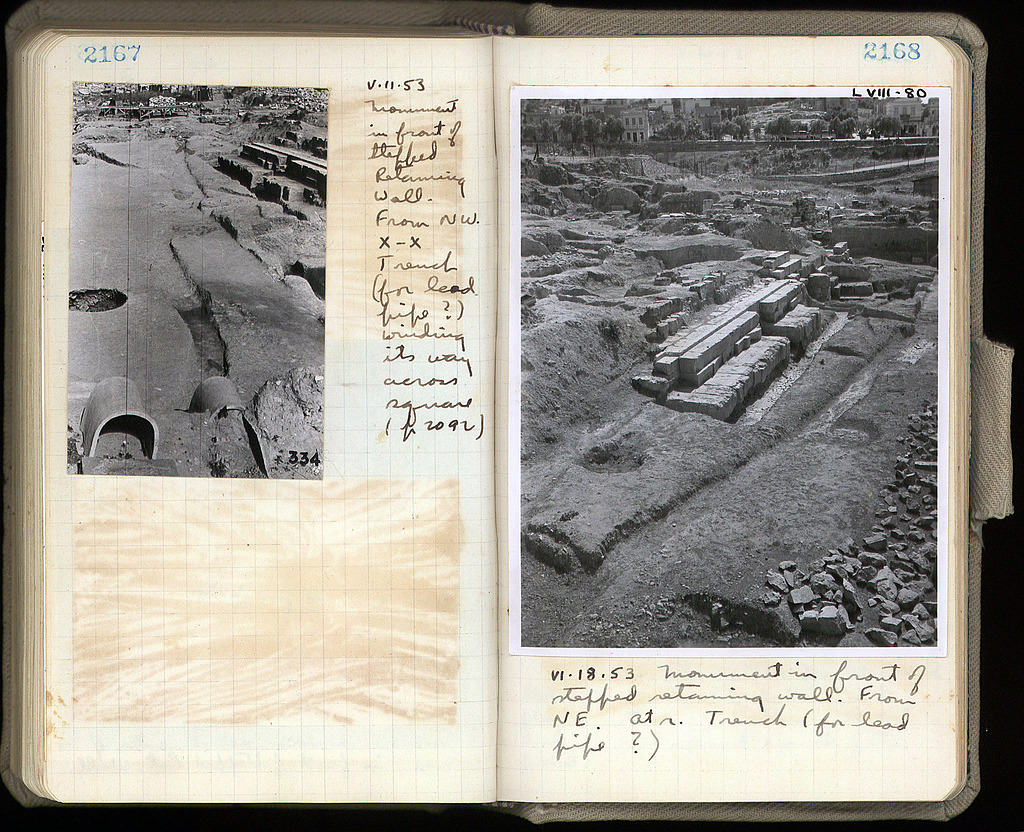 2167
V.11.53
Monument
in front of
stepped
Retaining
Wall.
From NW.
x-x
Trench
(for lead
pipe ?)
winding
its way
across
square
(p 2092)
334
2168
LVIII-80
VI.18.53 Monument in front of
stepped retaining wall. From
NE. at r. Trench (for lead
pipe ?)